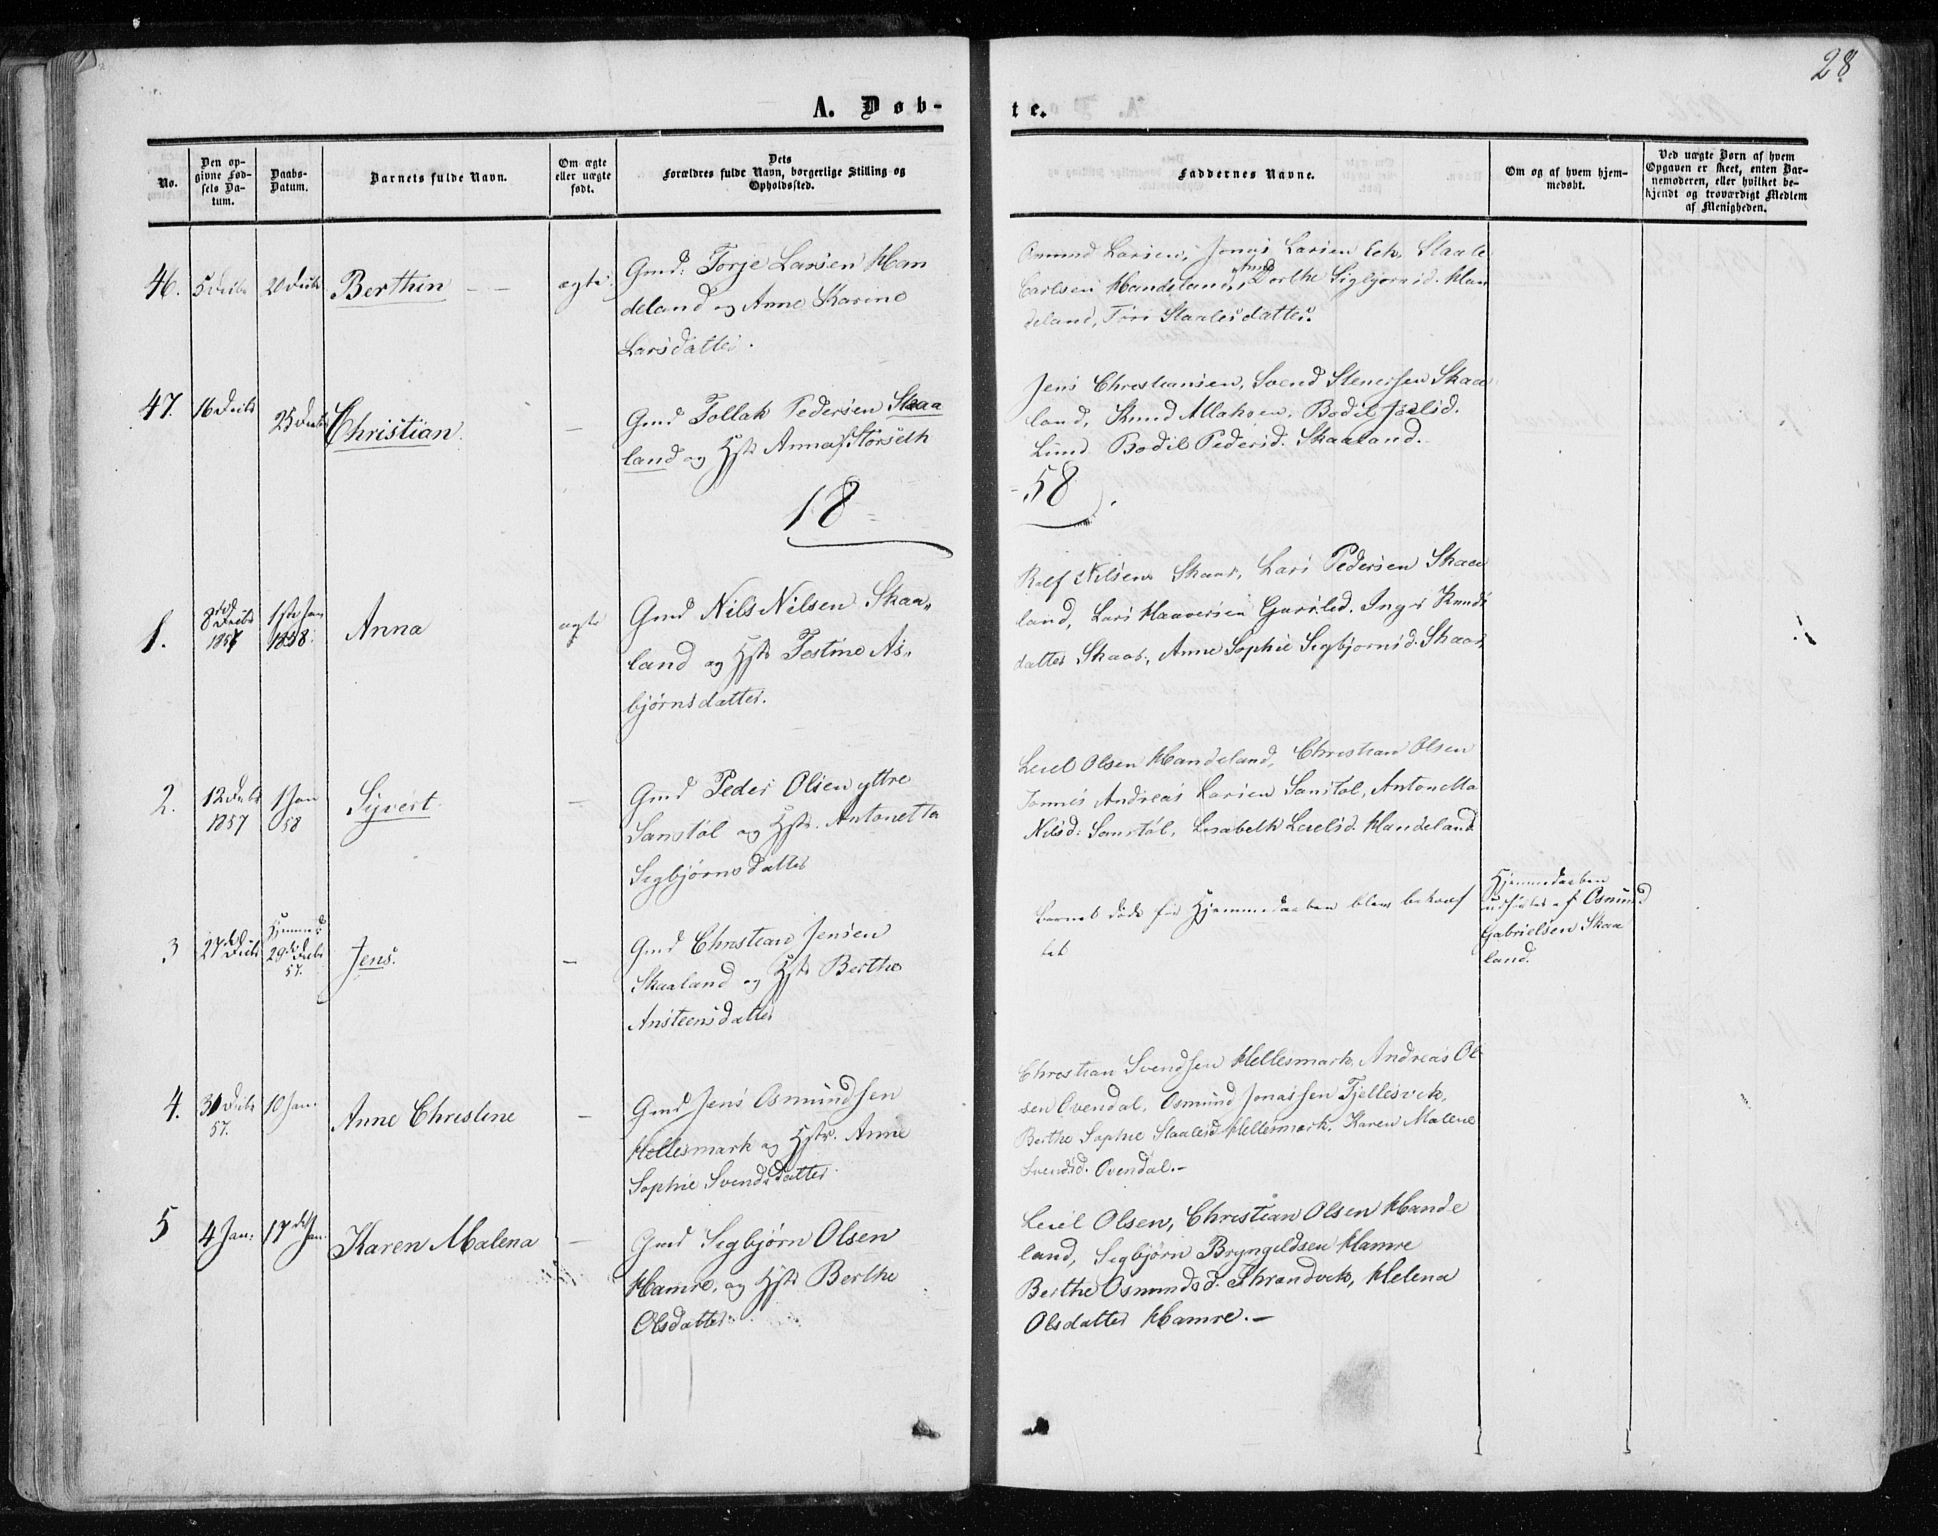 28
A. Døb-
te.
No.
Den op-
givne Fød-
sels Da-
tum.
Daabs-
Datum.
Barnets fulde Navn.
Om ægte
eller uægte
født.
Dets
Forældres fulde Navn, borgerlige Stilling og
Opholdssted.
Faddernes Navne.
Om og af hvem hjem-
medøbt.
Ved uægte Børn af hvem
Opgaven er skeet, enten Bar-
nemoderen, eller hvilket be-
kjendt og troværdigt Medlem
af Menigheden.
46.
5 Decbr
20 Decbr
Berthin
ægte
Gmd: Torje Larsen Han
deland og Anne Karine
Larsdatter.
Osmund Larsen, Jonas Larsen Eek, Staale
Carlsen Handeland, Anne Dorthe Sigbjørnsd. Han
deland, Tori Staalesdatter.
47.
16 Decbr
25 Decbr
Christian
—
Gmd Tollak Pedersen Skaa
land og Hstr Anna Storseth
Jens Christiansen, Svend Stenersen Skaa
land, Knud Allaksen, Bodil Joelsd.
Lund Bodil Pedersd. Skaaland.
18
58
1.
8de Decbr
1857
1ste Jan
1858.
Anna
ægte
Gmd Nils Nilsen Skaa-
land og Hstr Testine As-
bjørnsdatter.
Rolf Nilsen Skaar, Lars Pedersen Skaa
land, Lars Haaversen Gursled. Inger Knuds
datter Skaar, Anne Sophie Sigbjørnsd. Skaar
2.
12 Decbr
1857
1 Jan
58
Syvert
—
Gmd Peder Olsen yttre
Sanstøl og Hstr. Antonetta
Sigbjørnsdatter
Leiel Olsen Handeland, Christian Olsen
Tonnes Andreas Larsen Sanstøl, Antonetta
Nilsd: Sanstøl, Lisabeth Leielsd. Handeland
3
27de Decbr
Hjemmed
29de Decbr
57.
Jens.
—
Gmd Christian Jensen
Skaaland og Hstr Berthe
Ansteensdatter
Barnet døde før Hjemmedaaben blev bekræf
tet
Hjemmedaaben
udførtes af Osmund
Gabrielsen Skaa
land.
4.
31 Decbr
57.
10 Jan.
Anne Christine
—
Gmd Jens Osmundsen
Hellesmark og Hstr. Anne
Sophie Svendsdatter
Christian Svendsen Hellesmark, Andreas Ol
sen Ovendal, Osmund Jonassen Fjellesvek,
Berthe Sophie Staalesd Hellesmark, Karen Malene
Svendsd. Ovendal.—
5
4 Jan.
17de Jan.
Karen Malena
—
Gmd Sigbjørn Olsen
Hamre, og Hstr Berthe
Olsdatter
Leiel Olsen, Christian Olsen Hande
land, Sigbjørn Bryngeldsen Hamre
Berthe Osmundsd. Thrandvek, Helena
Olsdatter Hamre.—